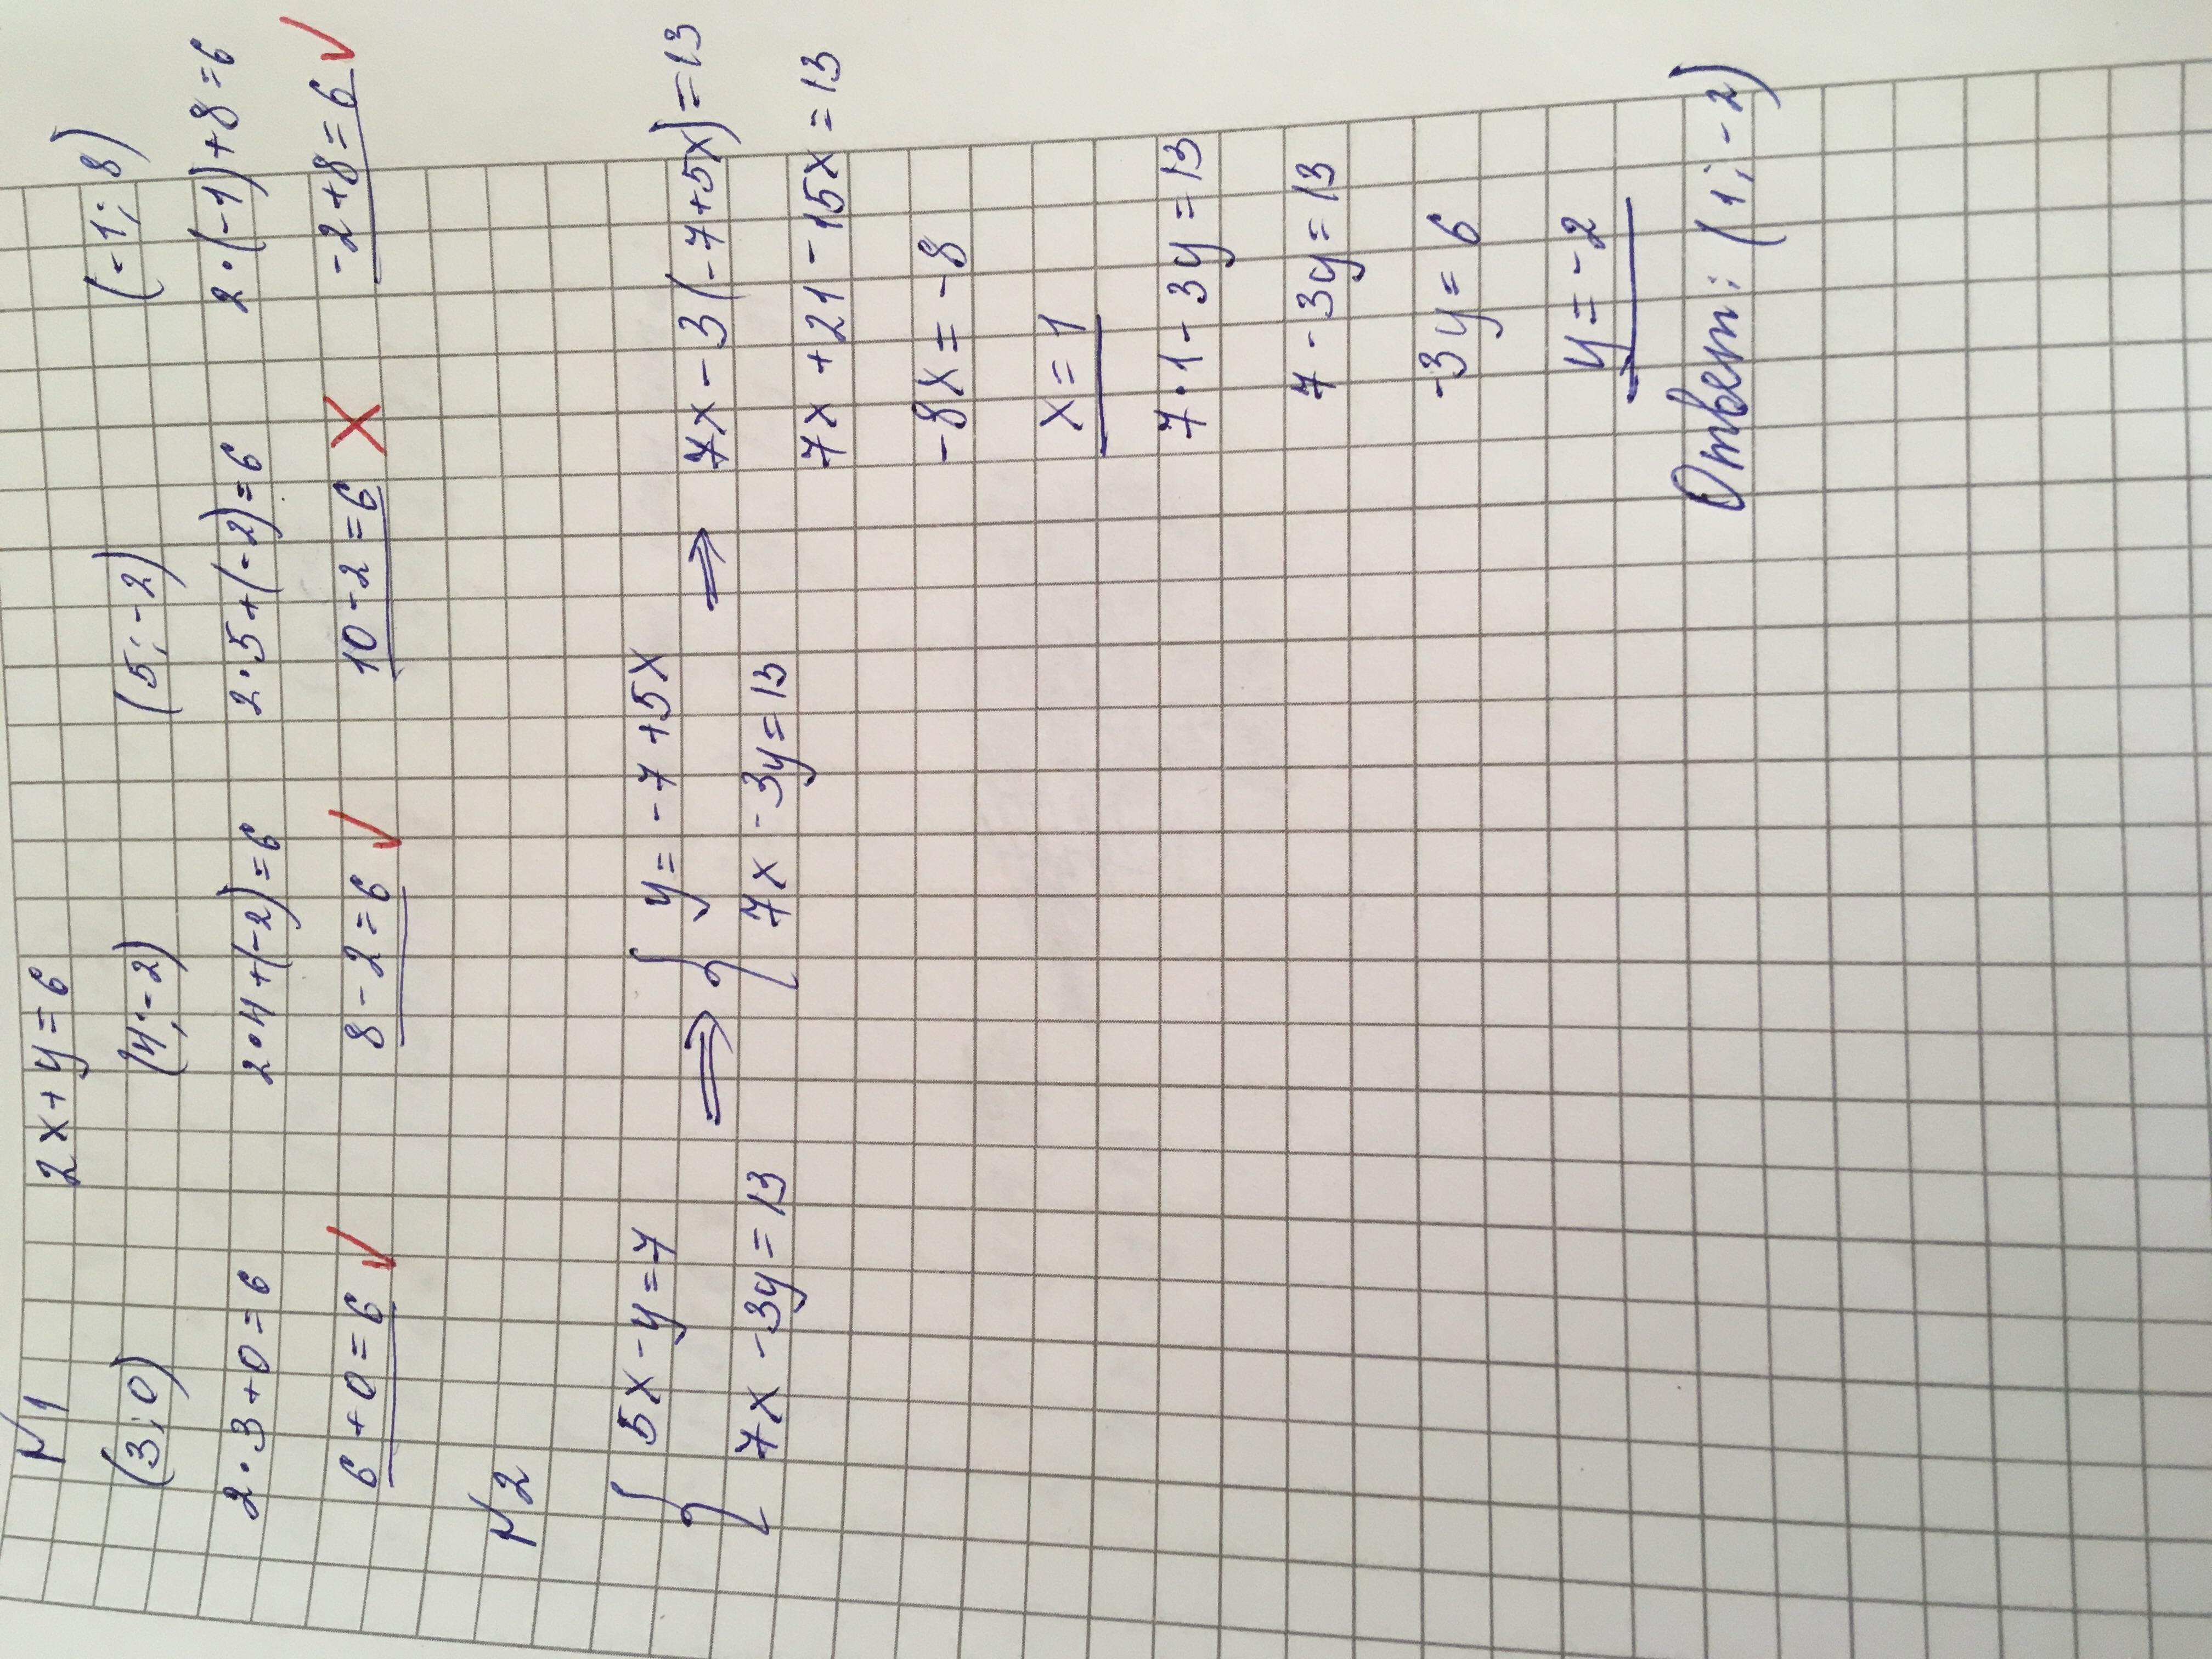 N1 2x+y=6
(3;0) (4;-2) (5;-2) (-1;8)
2·3+0=6 2·4+(-2)=6 2·5+(-2)=6 2·(-1)+8=6
6+0=6 ✓ 8-2=6 ✓ 10-2=6 X -2+8=6 ✓
N2
{ 5x-y=7 ⇒ { y=-7+5x ⇒ 7x-3(-7+5x)=13
7x-3y=13 7x-3y=13 7x+21-15x=13
-8x=-8
x=1
7·1-3y=13
7-3y=13
-3y=6
y=-2
Ответ: (1;-2)